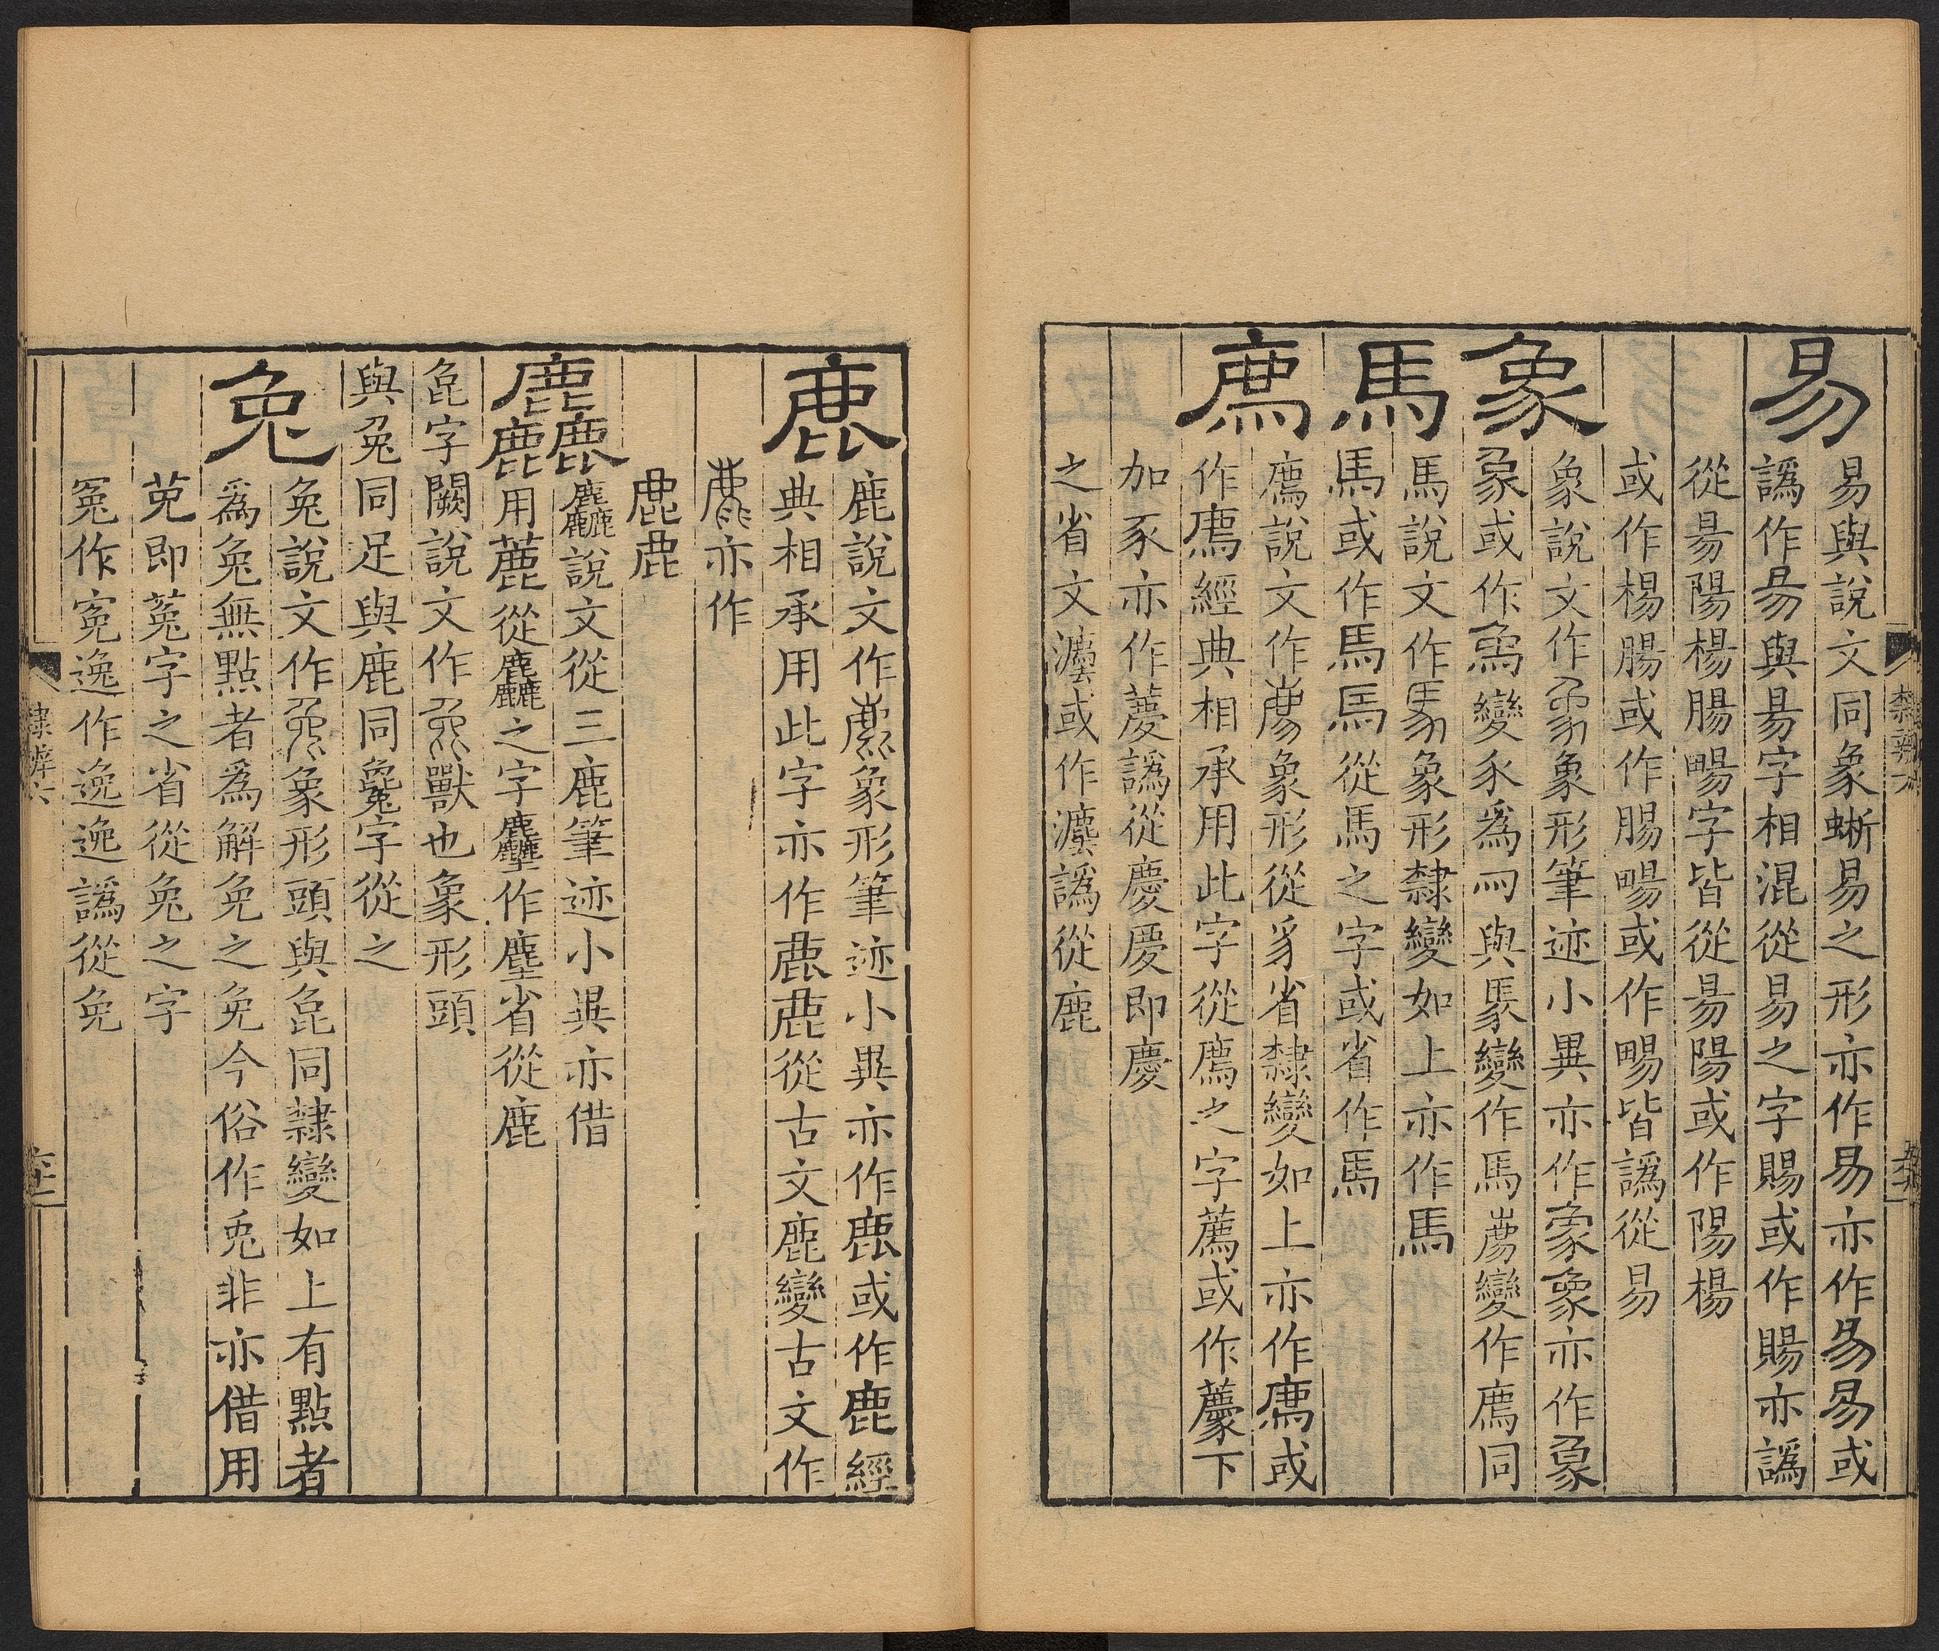 易
易與說文同象蜥易之形亦作易亦作易易或
譌作昜與昜字相混從易之字賜或作賜亦譌
從昜陽楊腸暢字皆從昜陽或作陽楊
或作楊腸或作腸暢或作暢皆譌從易
象
象說文作象象形筆迹小異亦作象象亦作象
象或作為變豕為與豫變作馬廌變作廌同
馬
馬說文作馬象形隸變如上亦作馬
馬或作馬馬從馬之字或省作馬
廌
廌說文作廌象形從豸省隸變如上亦作廌或
作廌經典相承用此字從廌之字薦或作下
加豕亦作譌從慶慶即慶
之省文灋或作灋譌從鹿
隸辨六
鹿
鹿說文作鹿象形筆迹小異亦作鹿或作鹿經
典相承用此字亦作鹿鹿從古文鹿變古文作
亦作
鹿鹿
麤
麤說文從三鹿筆迹小異亦借
用麤從麤之字作塵省從鹿
㲋字闕說文作㲋獸也象形頭
與兔同足與鹿同毚字從之
兔
兔說文作兔象形頭與㲋同隸變如上有點者
為兔無點者為解免之免今俗作兎非亦借用
莬即菟字之省從兔之字
冤作寃逸作逸逸譌從免
隸辨六